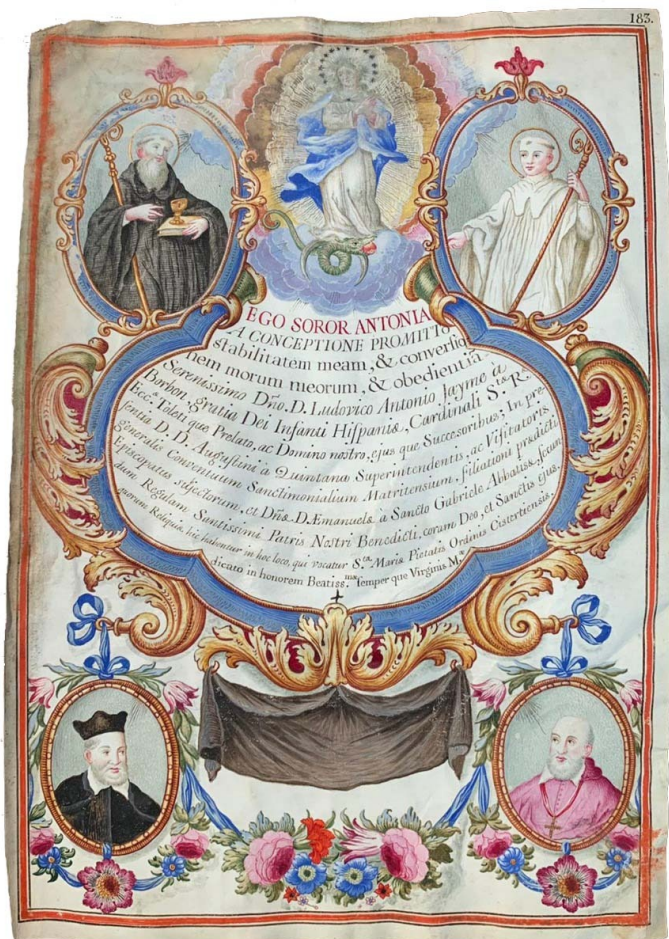 183.
EGO SOROR ANTONIA
A CONCEPTIONE PROMITTO
stabilitatem meam, & conversio
nem morum meorum, & obedientiã
Serenissimo Dño. D. Ludovico Antonio Jayme à
Borbon, gratia Dei Infanti Hispaniæ, Cardinali S.tæ R.æ
Ecc.æ Toleti que Prelato, ac Domino nostro, ejus que Succesoribus; In præ-
sentia D. D. Augustini à Quintana Superintendentis, ac Visitatoris
generalis Conventuum Sanctimonialium Matritensium, filiationi prædicti
Episcopatus subjectorum, et Dñæ. D. Æmanuelæ à Sancto Gabriele Abbatissæ, secun
dum Regulam Santissimi Patris Nostri Benedicti, coram Deo, et Sanctis ejus,
quorum Reliquiæ hic habentur in hoc loco, qui vocatur S.tæ Mariæ Pietatis Ordinis Cistertiensis,
dicato in honorem Beatiss.mæ semper que Virginis M.æ